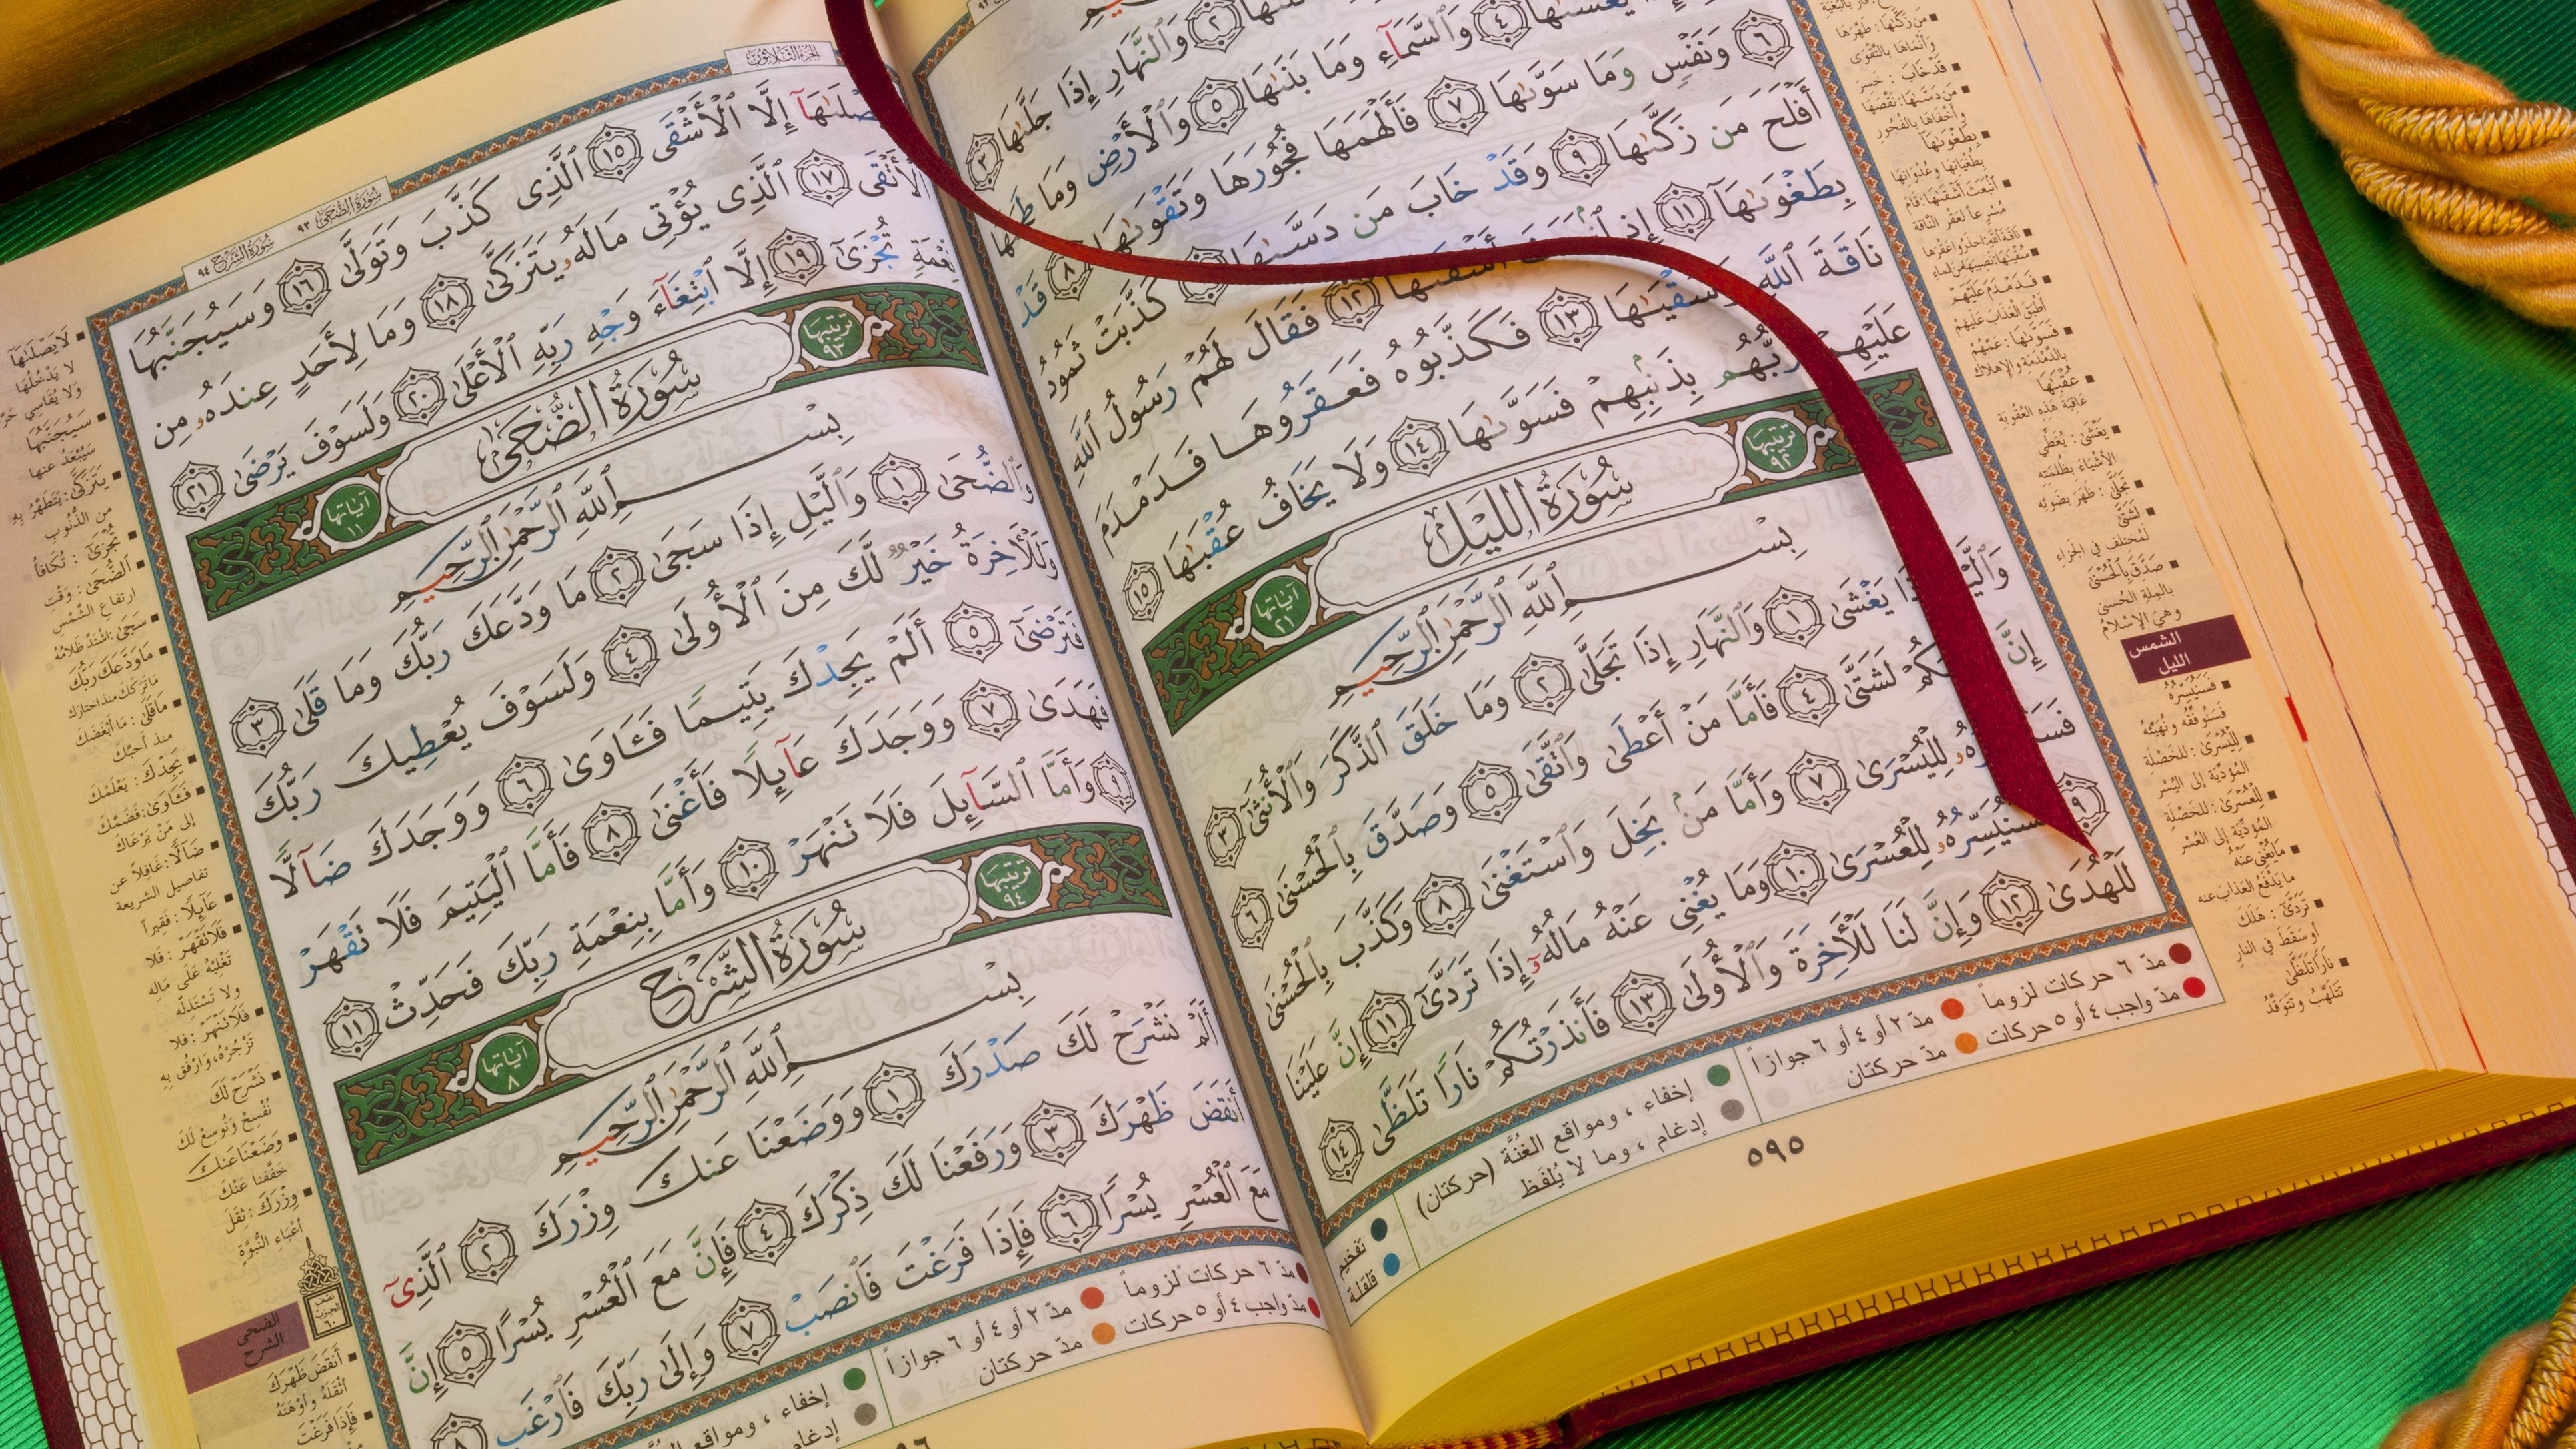 وَٱلنَّهَارِ إِذَا جَلَّىٰهَا ٣
وَٱلسَّمَآءِ وَمَا بَنَىٰهَا ٥ وَٱلْأَرْضِ وَمَا طَحَىٰهَا
٦ وَنَفْسٍ وَمَا سَوَّىٰهَا ٧ فَأَلْهَمَهَا فُجُورَهَا وَتَقْوَىٰهَا ٨ قَدْ
أَفْلَحَ مَن زَكَّىٰهَا ٩ وَقَدْ خَابَ مَن دَسَّىٰهَا كَذَّبَتْ ثَمُودُ
بِطَغْوَىٰهَآ ١١ إِذِ أَشْقَىٰهَا ١٢ فَقَالَ لَهُمْ رَسُولُ ٱللَّهِ
نَاقَةَ ٱللَّهِ وَسُقْيَـٰهَا ١٣ فَكَذَّبُوهُ فَعَقَرُوهَا فَدَمْدَمَ
عَلَيْهِمْ رَبُّهُم بِذَنۢبِهِمْ فَسَوَّىٰهَا ١٤ وَلَا يَخَافُ عُقْبَـٰهَا ١٥
ترتيبها ٩٢ سُورَةُ اللَّيْلِ آياتها ٢١
بِسْمِ ٱللَّهِ ٱلرَّحْمَـٰنِ ٱلرَّحِيمِ
وَٱلَّيْلِ إِذَا يَغْشَىٰ ١ وَٱلنَّهَارِ إِذَا تَجَلَّىٰ ٢ وَمَا خَلَقَ ٱلذَّكَرَ وَٱلْأُنثَىٰٓ ٣
إِنَّ لَشَتَّىٰ ٤ فَأَمَّا مَنْ أَعْطَىٰ وَٱتَّقَىٰ ٥ وَصَدَّقَ بِٱلْحُسْنَىٰ ٦
لِلْيُسْرَىٰ ٧ وَأَمَّا مَنۢ بَخِلَ وَٱسْتَغْنَىٰ ٨ وَكَذَّبَ بِٱلْحُسْنَىٰ
٩ فَسَنُيَسِّرُهُۥ لِلْعُسْرَىٰ ١٠ وَمَا يُغْنِى عَنْهُ مَالُهُۥٓ إِذَا تَرَدَّىٰٓ ١١ إِنَّ عَلَيْنَا
لَلْهُدَىٰ ١٢ وَإِنَّ لَنَا لَلْأَخِرَةَ وَٱلْأُولَىٰ ١٣ فَأَنذَرْتُكُمْ نَارًا تَلَظَّىٰ ١٤
مدّ ٦ حركات لزوماً مدّ ٢ أو ٤ أو ٦ جوازاً
مدّ واجب ٤ أو ٥ حركات مدّ حركتان
إخفاء ، ومواقع الغُنَّة (حركتان)
إدغام ، وما لا يُلفَظ
تفخيم
قلقلة
٥٩٥
مَن زَكَّىٰهَا : طَهَّرَهَا
وَأَنْمَاهَا بِالتَّقْوَى
قَدْ خَابَ : خَسِرَ
مَن دَسَّىٰهَا : نَقَصَهَا
وَأَخْفَاهَا بِالفُجُورِ
بِطَغْوَىٰهَآ
بِطُغْيَانِهَا وَعُدْوَانِهَا
ٱنۢبَعَثَ أَشْقَىٰهَا : قَامَ
مُسْرِعاً لِعَقْرِ النَّاقَةِ
فَدَمْدَمَ عَلَيْهِمْ
أَطْبَقَ العَذَابَ عَلَيْهِمْ
فَسَوَّىٰهَا : عَمَّهُمْ
بِالدَّمْدَمَةِ وَالإهلاك
عُقْبَـٰهَا
عَاقِبَةَ هَذِهِ العُقُوبَةِ
يَغْشَىٰ : يُغَطِّي
الأَشْيَاءَ بِظُلْمَتِهِ
تَجَلَّىٰ : ظَهَرَ بِضَوئِهِ
لَشَتَّىٰ
لَمُختلف في الجَزاءِ
صَدَّقَ بِٱلْحُسْنَىٰ
بالمِلّةِ الحُسنى
وهيَ الإسْلامُ
الشمس
الليل
فَسَنُيَسِّرُهُۥ
فَسَنُوَفِّقُهُ ونُهَيِّئُهُ
لِلْيُسْرَىٰ : للخَصْلَةِ
المُؤدِّيَةِ إلى اليُسْرِ
لِلْعُسْرَىٰ : للخَصْلَةِ
المُؤدِّيَةِ إلى العُسْرِ
مَا يُغْنِى عَنْهُ
ما يَدْفَعُ العَذابَ عنه
تَرَدَّىٰٓ : هَلَكَ
أو سَقَطَ في النار
نَارًا تَلَظَّىٰ
تَتَلَهَّبُ وتَتَوَقَّدُ
الجُزْءُ الثَّلَاثُونَ
سُورَةُ الضُّحَىٰ ٩٣ سُورَةُ الشَّرْحِ ٩٤
يَصْلَىٰهَآ إِلَّا ٱلْأَشْقَى ١٥ ٱلَّذِى كَذَّبَ وَتَوَلَّىٰ ١٦ وَسَيُجَنَّبُهَا
ٱلْأَتْقَى ١٧ ٱلَّذِى يُؤْتِى مَالَهُۥ يَتَزَكَّىٰ ١٨ وَمَا لِأَحَدٍ عِندَهُۥ مِن
نِّعْمَةٍ تُجْزَىٰٓ ١٩ إِلَّا ٱبْتِغَآءَ وَجْهِ رَبِّهِ ٱلْأَعْلَىٰ ٢٠ وَلَسَوْفَ يَرْضَىٰ ٢١
ترتيبها ٩٣ سُورَةُ الضُّحَىٰ آياتها ١١
بِسْمِ ٱللَّهِ ٱلرَّحْمَـٰنِ ٱلرَّحِيمِ
وَٱلضُّحَىٰ ١ وَٱلَّيْلِ إِذَا سَجَىٰ ٢ مَا وَدَّعَكَ رَبُّكَ وَمَا قَلَىٰ ٣
وَلَلْأَخِرَةُ خَيْرٌ لَّكَ مِنَ ٱلْأُولَىٰ ٤ وَلَسَوْفَ يُعْطِيكَ رَبُّكَ
فَتَرْضَىٰٓ ٥ أَلَمْ يَجِدْكَ يَتِيمًا فَـَٔاوَىٰ ٦ وَوَجَدَكَ ضَآلًّا
فَهَدَىٰ ٧ وَوَجَدَكَ عَآئِلًا فَأَغْنَىٰ ٨ فَأَمَّا ٱلْيَتِيمَ فَلَا تَقْهَرْ
٩ وَأَمَّا ٱلسَّآئِلَ فَلَا تَنْهَرْ ١٠ وَأَمَّا بِنِعْمَةِ رَبِّكَ فَحَدِّثْ ١١
ترتيبها ٩٤ سُورَةُ الشَّرْحِ آياتها ٨
بِسْمِ ٱللَّهِ ٱلرَّحْمَـٰنِ ٱلرَّحِيمِ
أَلَمْ نَشْرَحْ لَكَ صَدْرَكَ ١ وَوَضَعْنَا عَنكَ وِزْرَكَ ٢ ٱلَّذِىٓ
أَنقَضَ ظَهْرَكَ ٣ وَرَفَعْنَا لَكَ ذِكْرَكَ ٤ فَإِنَّ مَعَ ٱلْعُسْرِ يُسْرًا ٥ إِنَّ
مَعَ ٱلْعُسْرِ يُسْرًا ٦ فَإِذَا فَرَغْتَ فَٱنصَبْ ٧ وَإِلَىٰ رَبِّكَ فَٱرْغَب ٨
مدّ ٦ حركات لزوماً مدّ ٢ أو ٤ أو ٦ جوازاً
مدّ واجب ٤ أو ٥ حركات مدّ حركتان
إخفاء ، ومواقع
إدغام
لَا يَصْلَىٰهَا
لا يَدْخُلُهَا
سَيُجَنَّبُهَا
سَيُبْعَدُ عنها
يَتَزَكَّىٰ : يَتَطَهَّرُ بِهِ
من الذُّنُوبِ
تُجْزَىٰٓ : تُكَافَأُ
ٱلضُّحَىٰ : وَقْتِ
ارتفاع الشَّمْسِ
سَجَىٰ : اشْتَدَّ ظَلامُهُ
مَا وَدَّعَكَ رَبُّكَ
مَا تَرَكَكَ منذ اختارك
مَا قَلَىٰ : مَا أَبْغَضَكَ
منذ أحبَّك
يَجِدْكَ : يَعْلَمْكَ
فَـَٔاوَىٰ : فَضَمَّكَ
إلى مَنْ يَرْعَاكَ
ضَآلًّا : غَافِلاً عن
تفاصيل الشريعة
عَآئِلًا : فَقيراً
فَلَا تَقْهَرْ : فلا
تَغْلِبْهُ عَلَى مَالِهِ
ولا تَسْتَذِلَّه
فَلَا تَنْهَرْ : فلا
تَزْجُرْهُ، وَارْفُق بِهِ
نَشْرَحْ لَكَ
نُفْسِحْ وَنُوسِعْ لَكَ
وَضَعْنَا عَنكَ
خَفَّفنا عَنْكَ
وِزْرَكَ : ثِقَلَ
أَعْبَاءِ النُّبُوَّةِ
الضحى
الشرح
أَنقَضَ ظَهْرَكَ
أَثْقَلَهُ وأَوْهَنَهُ
فَإِذَا فَرَغْتَ